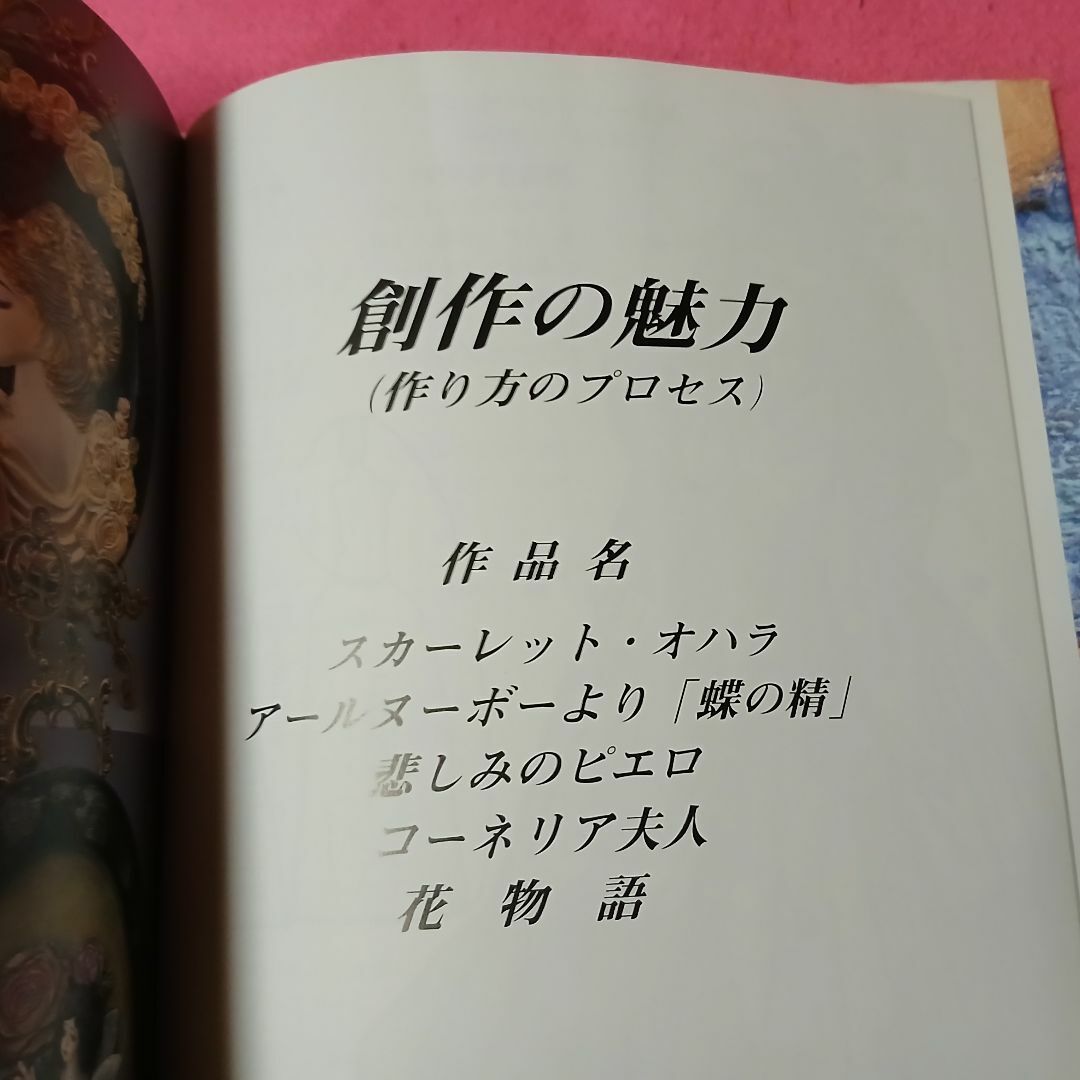 創作の魅力
(作り方のプロセス)
作品名
スカーレット・オハラ
アールヌーボーより「蝶の精」
悲しみのピエロ
コーネリア夫人
花物語